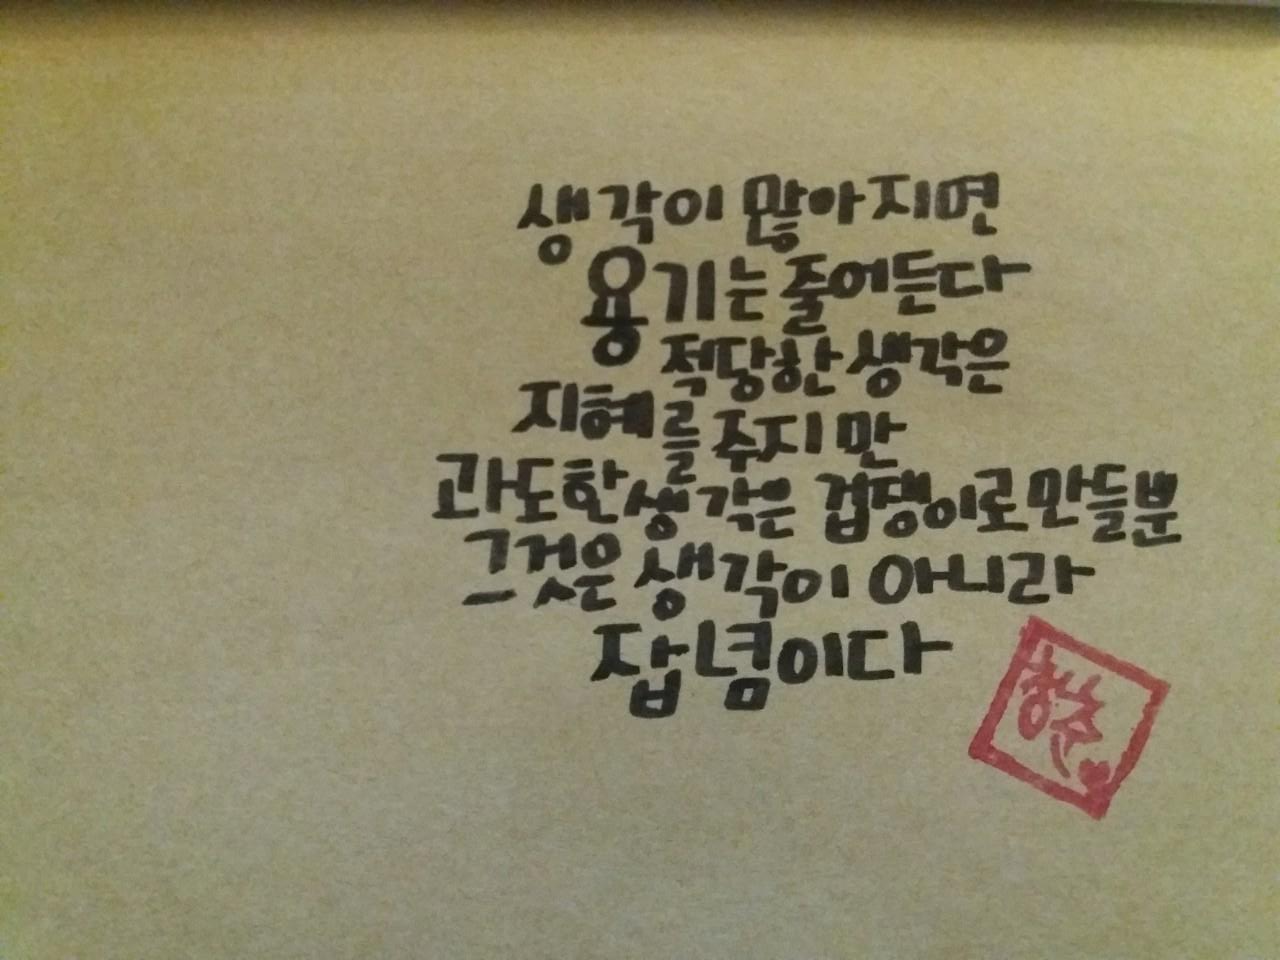 생각이 많아지면
용기는 줄어든다
적당한 생각은
지혜를 주지만
과도한 생각은 겁쟁이로 만들뿐
그것은 생각이 아니라
잡념이다